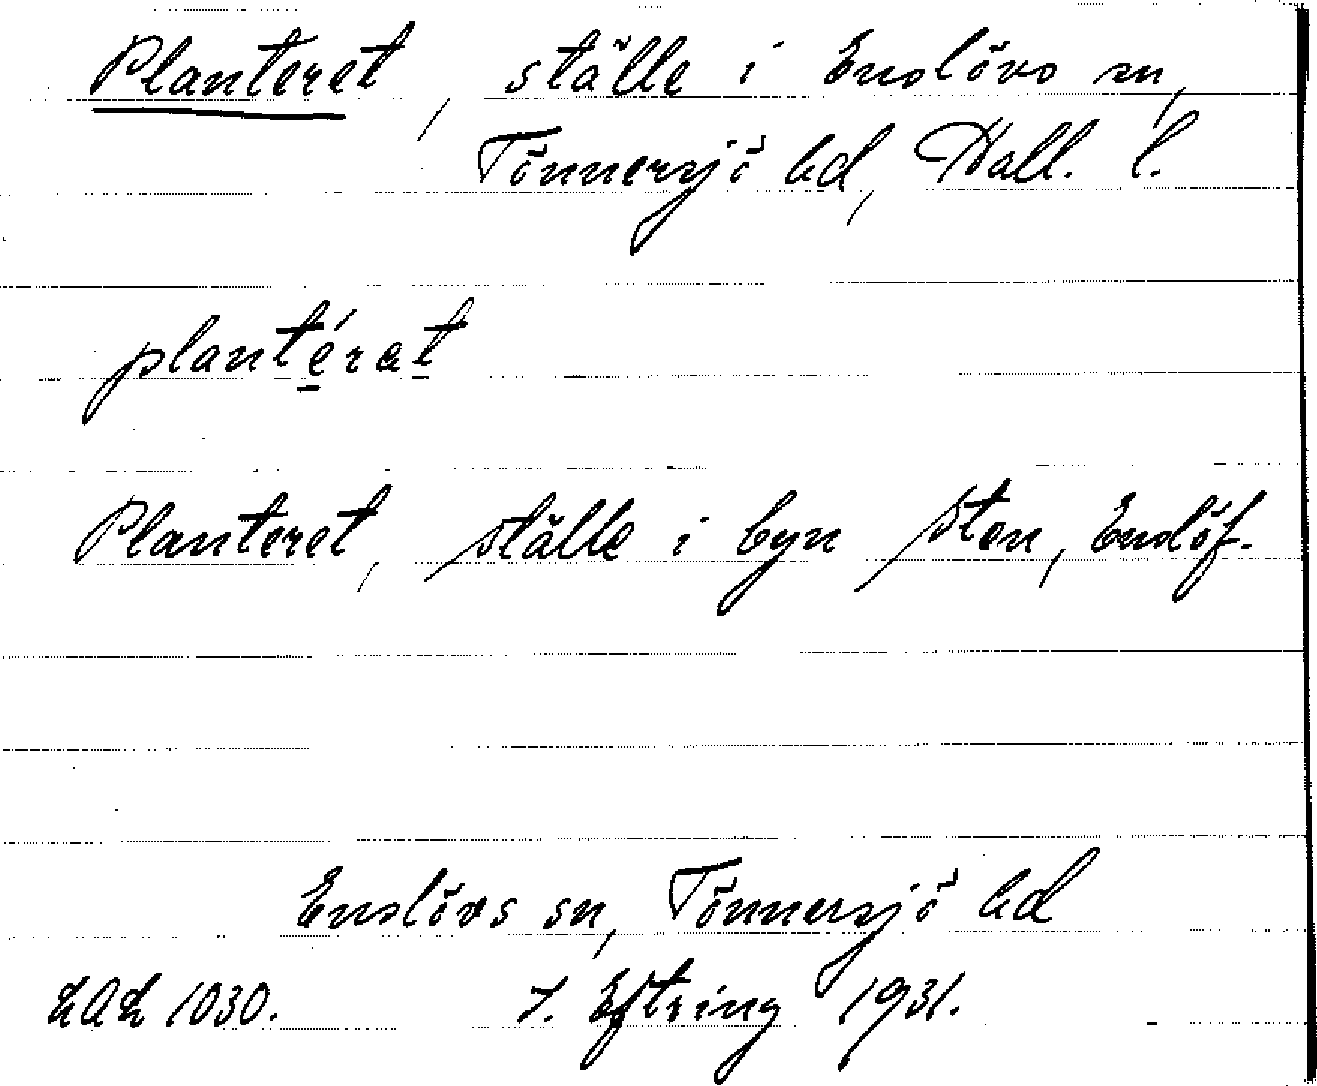 Planteret, ställe i Enslövs sn,
Tönnersjö hd, Hall. l.
plantérat
Planteret, ställe i byn Sten, Enslöf.
Enslövs sn, Tönnersjö hd
LAL 1030. J. Eftring 1931.